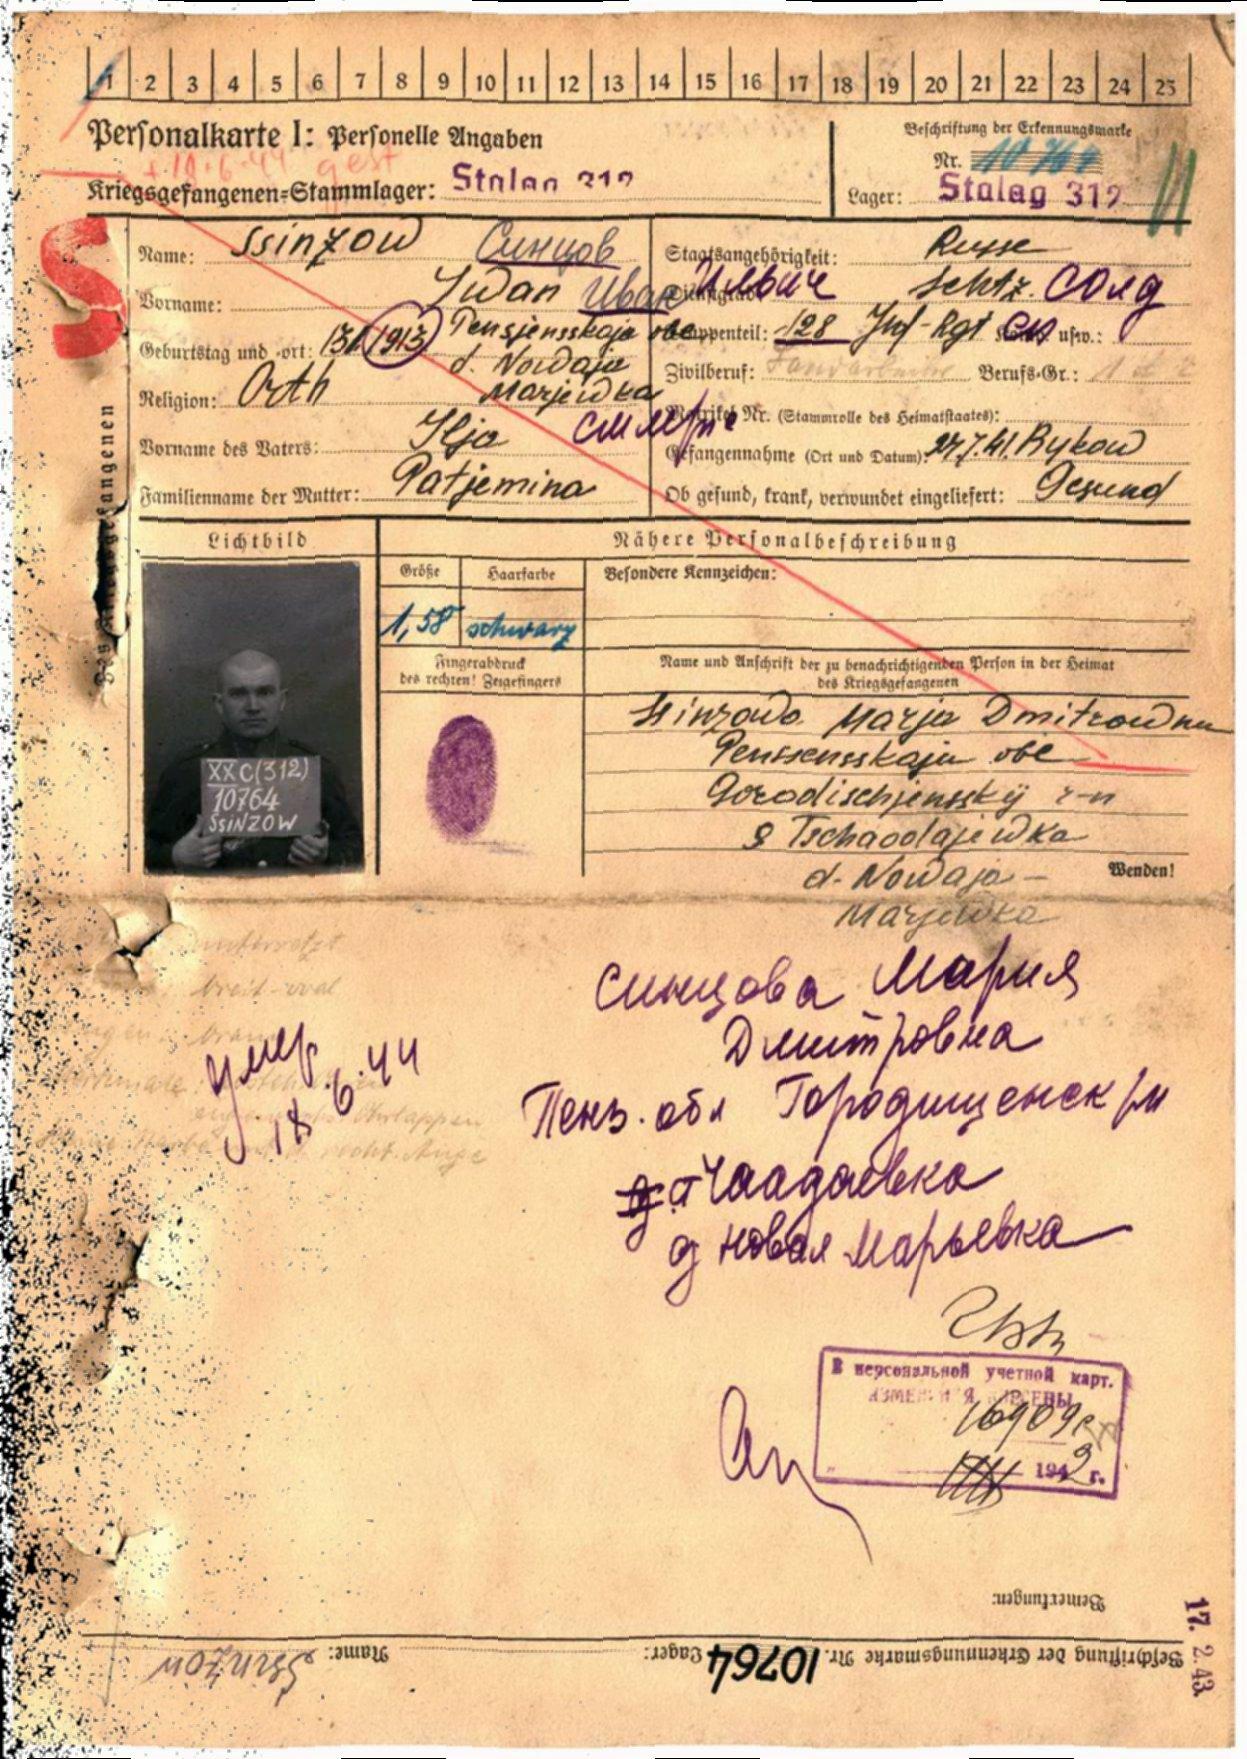 1 2 3 4 5 6 7 8 9 10 11 12 13 14 15 16 17 18 19 20 21 22 23 24 25
Personalkarte I: Personelle Angaben
Beschriftung der Erkennungsmarke
Nr. 10764
+ 18.6.44 gest
Kriegsgefangenen-Stammlager: Stalag 312
Lager: Stalag 312
S
Des Kriegsgefangenen
Name: Ssinzow Синцов
Staatsangehörigkeit: Russe
Vorname: Iwan Иван Ильич
Dienstgrad: Schtz. солд
Geburtstag und -ort: 1913 Pensjensskaja obl
d. Nowaja
Marjewka
Truppenteil: 128 Inf-Rgt usw.:
Zivilberuf: Landarbeiter Berufs-Gr.:
Religion: Orth
Matrikel Nr. (Stammrolle des Heimatstaates):
Vorname des Vaters: Ilja
Gefangennahme (Ort und Datum): 27.7.41. Rykow
Familienname der Mutter: Patjemina
Ob gesund, krank, verwundet eingeliefert: Gesund
Lichtbild
Nähere Personalbeschreibung
Größe Haarfarbe
Besondere Kennzeichen:
1,58 schwarz
Fingerabdruck
des rechten! Zeigefingers
Name und Anschrift der zu benachrichtigenden Person in der Heimat
des Kriegsgefangenen
XX C(312)
10764
SSINZOW
Ssinzowa Marja Dmitrowna
Penssensskaja obl
Gorodischjensskij r-n
S Tschaodajewka
d. Nowaja-
Marjewka
Wenden!
untersetzt
breit-oval
Синцова Мария
Дмитровна
умер
18.6.44
Пенз. обл Городищенск р/н
Чаадаевка
д Новая Марьевка
В персональной учетной карт.
16909с
194 г.
Bemerkungen:
17. 2. 43.
Beschriftung der Erkennungsmarke Nr. 10764 Lager:
Name: Ssinzow